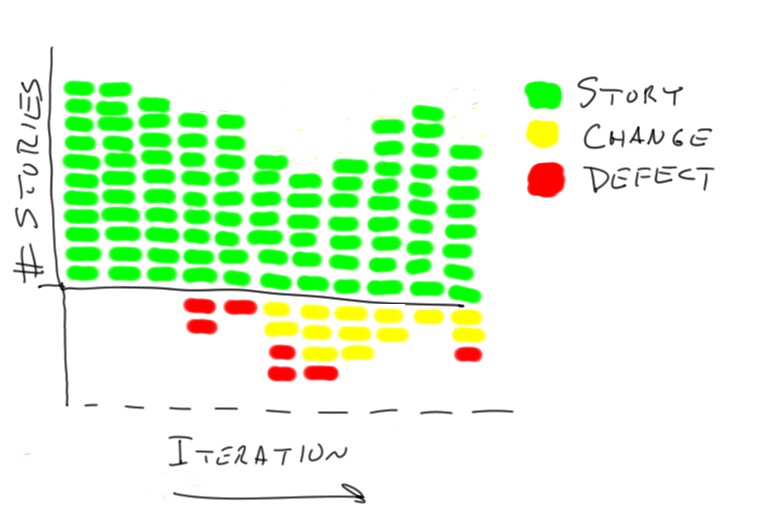 # STORIES
STORY
CHANGE
DEFECT
ITERATION